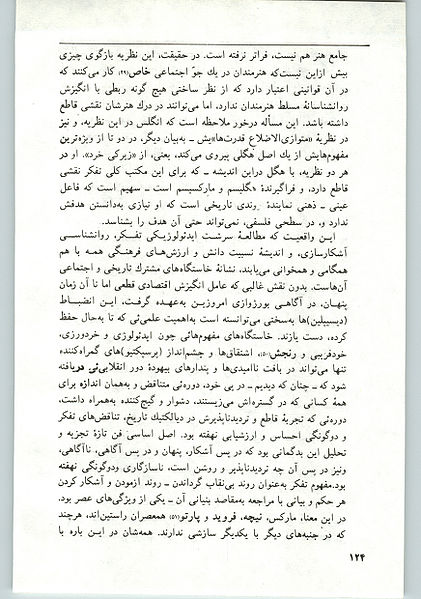 جامع هنر هم نیست، فراتر نرفته است. در حقیقت، این نظریه بازگوی چیزی
بیش ازاین نیست‌که هنرمندان در یك جوّ اجتماعی خاص(۴۹) کار می‌کنند که
در آن قوانینی اعتبار دارد که از نظر ساختی هیچ گونه ربطی با انگیزش
روانشناسانهٔ مسلط هنرمندان ندارد، اما می‌توانند در درك هنرشان نقشی قاطع
داشته باشد. این مسأله درخور ملاحظه است که انگلس در این نظریه، و نیز
در نظریهٔ «متوازی‌الاضلاع قدرت‌ها»یش ــ به‌بیان دیگر، در دو تا از ویژه‌ترین
مفهوم‌هایش از یك اصل هگلی پیروی می‌کند، یعنی، از «زیرکی خرد». او در
هر دو نظریه، با هگل دراین اندیشه ــ که برای این مکتب کلی تفکر نقشی
قاطع دارد، و فراگیرندهٔ هگلیسم و مارکسیسم است ــ سهیم است که فاعل
عینی ــ ذهنی نمایندهٔ روندی تاریخی است که او نیازی به‌دانستن هدفش
ندارد و، در سطحی فلسفی، نمی‌تواند حتی آن هدف را بشناسد.
این واقعیت که مطالعهٔ سرشت ایدئولوژیکی تفکر، روانشناسی
آشکارسازی، و اندیشهٔ نسبیت دانش و ارزش‌های فرهنگی همه با هم
همگامی و همخوانی می‌یابند، نشانهٔ خاستگاه‌های مشترك تاریخی و اجتماعی
آن‌هاست. بدون نقش غالبی که عامل انگیزش اقتصادی قطعی اما تا آن زمان
پنهان، در آگاهی بورژوازی امروزین به‌عهده گرفت، این انضباط
(دیسیپلین)ها به‌سختی می‌توانسته است به‌اهمیت علمی‌ئی که تا به‌حال حفظ
کرده، دست یازند. خاستگاه‌های مفهوم‌هائی چون ایدئولوژی و خردورزی،
خودفریبی و رنجش(۵۰)، اشتقاق‌ها و چشم‌انداز (پرسپکتیو)های گمراه‌کننده
تنها می‌تواند در بافت ناامیدی‌ها و پندارهای بیهودهٔ دور انقلابی‌ئی دریافته
شود که ــ چنان که دیدیم ــ در پی خود، دوره‌ئی متناقض و به‌همان اندازه برای
همهٔ کسانی که در گستره‌اش می‌زیستند، دشوار و گیج‌کننده به‌همراه داشت،
دوره‌ئی که تجربهٔ قاطع و تردیدناپذیرش در دیالکتیك تاریخ، تناقض‌های تفکر
و دوگونگی احساس و ارزشیابی نهفته بود. اصل اساسی فن تازهٔ تجزیه و
تحلیل این بدگمانی بود که در پس آشکار، پنهان و در پس آگاهی، ناآگاهی،
ونیز در پس آن چه تردیدناپذیر و روشن است، ناسازگاری ودوگونگی نهفته
بود.مفهوم تفکر به‌عنوان روند بی‌نقاب گرداندن ــ روند آزمودن و آشکار کردن
هر حکم و بیانی با مراجعه به‌مقاصد بنیانی آن ــ یکی از ویژگی‌های عصر بود.
در این معنا، مارکس، نیچه، فروید و پارتو(۵۱) همعصران راستین‌اند، هرچند
که در جنبه‌های دیگر با یکدیگر سازشی ندارند. همه‌شان در این باره با
۱۲۴